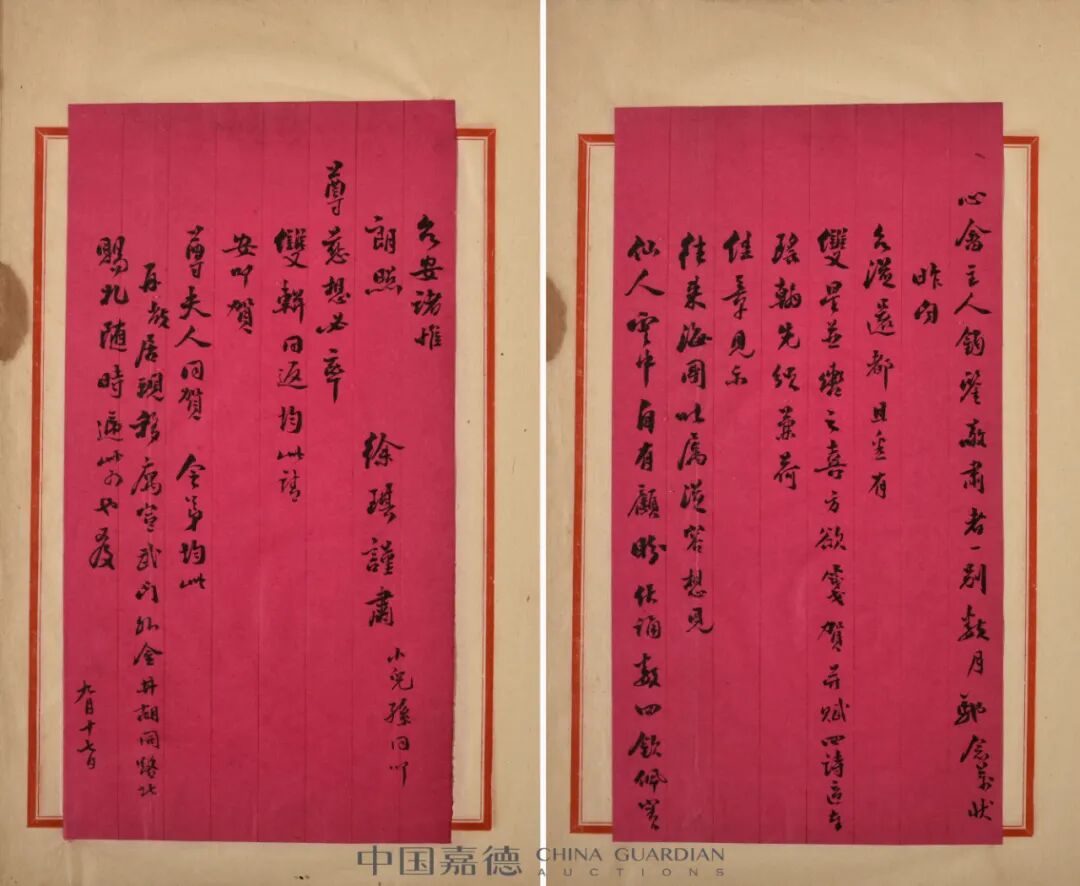 心畬主人鈞鑒敬肅者一別數月馳念萬狀
昨聞
台從還都且并有
雙星並耀之喜方欲箋賀并賦四詩適奉
瑤翰先頒兼荷
佳章見示
往來海國以寫從容想見
仙人雲中自有顧盼伏誦數四欽佩實
台安諸惟
朗照 徐琪謹肅 小兒孫同叩
尊慈想必率
雙輯同返均此請
安叩賀
尊夫人同賀 令弟均此
再敝居現移寓宣武門外金井胡同路北
賜札隨時遞此可也
九月十七日
中国嘉德 CHINA GUARDIAN
AUCTIONS